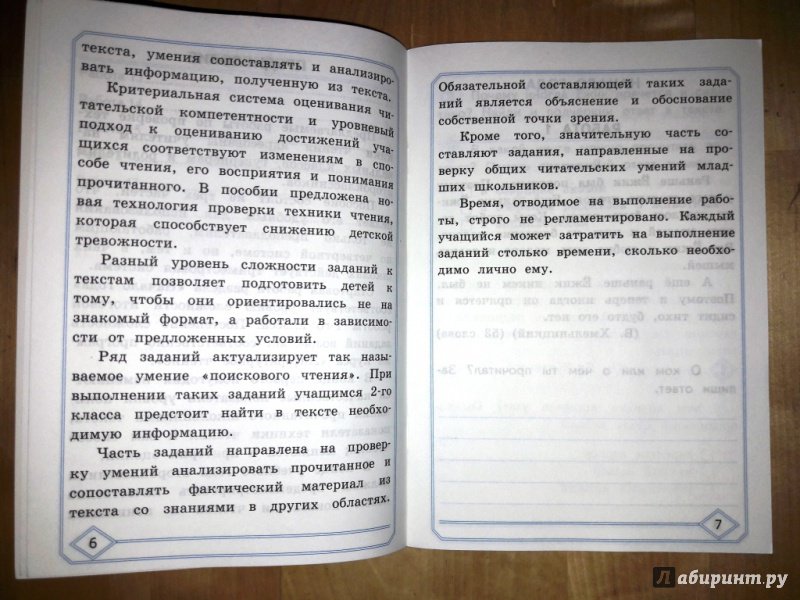 текста, умения сопоставлять и анализиро-
вать информацию, полученную из текста.
Критериальная система оценивания чи-
тательской компетентности и уровневый
подход к оцениванию достижений уча-
щихся соответствуют изменениям в спо-
собе чтения, его восприятия и понимания
прочитанного. В пособии предложена но-
вая технология проверки техники чтения,
которая способствует снижению детской
тревожности.
Разный уровень сложности заданий к
текстам позволяет подготовить детей к
тому, чтобы они ориентировались не на
знакомый формат, а работали в зависимо-
сти от предложенных условий.
Ряд заданий актуализирует так назы-
ваемое умение «поискового чтения». При
выполнении таких заданий учащимся 2-го
класса предстоит найти в тексте необхо-
димую информацию.
Часть заданий направлена на провер-
ку умений анализировать прочитанное и
сопоставлять фактический материал из
текста со знаниями в других областях.
6
Обязательной составляющей таких зада-
ний является объяснение и обоснование
собственной точки зрения.
Кроме того, значительную часть со-
ставляют задания, направленные на про-
верку общих читательских умений млад-
ших школьников.
Время, отводимое на выполнение рабо-
ты, строго не регламентировано. Каждый
учащийся может затратить на выполнение
заданий столько времени, сколько необхо-
димо лично ему.
7
Лабиринт.ру